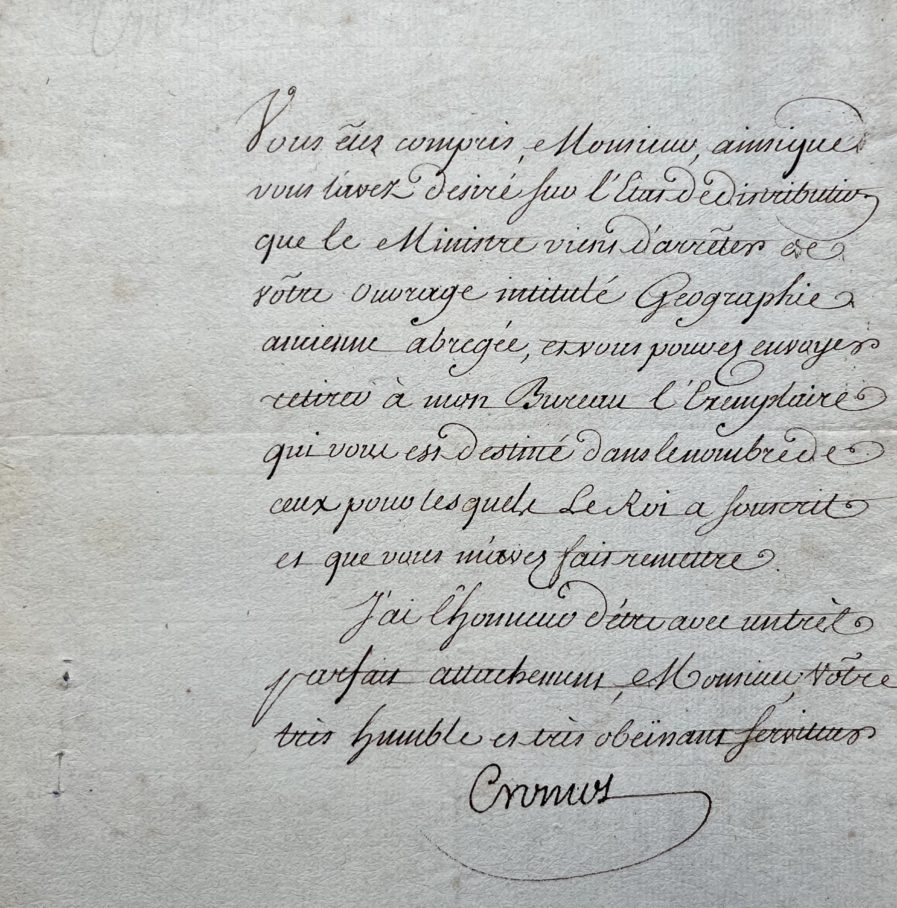 Vous êtes compris, Monsieur, ainsi que
vous l'avez desiré sur l'Etat de distribution
que le Ministre vient d'arrêter de
vôtre ouvrage intitulé Géographie
ancienne abregée, et vous pouvez envoyer
retirer à mon Bureau l'Exemplaire
qui vous est destiné dans le nombre de
ceux pour lesquels Le Roi a souscrit
et que vous m'avez fait remettre.
J'ai l'honneur d'être avec un très
parfait attachement, Monsieur, Vôtre
très humble et très obeïssant serviteur